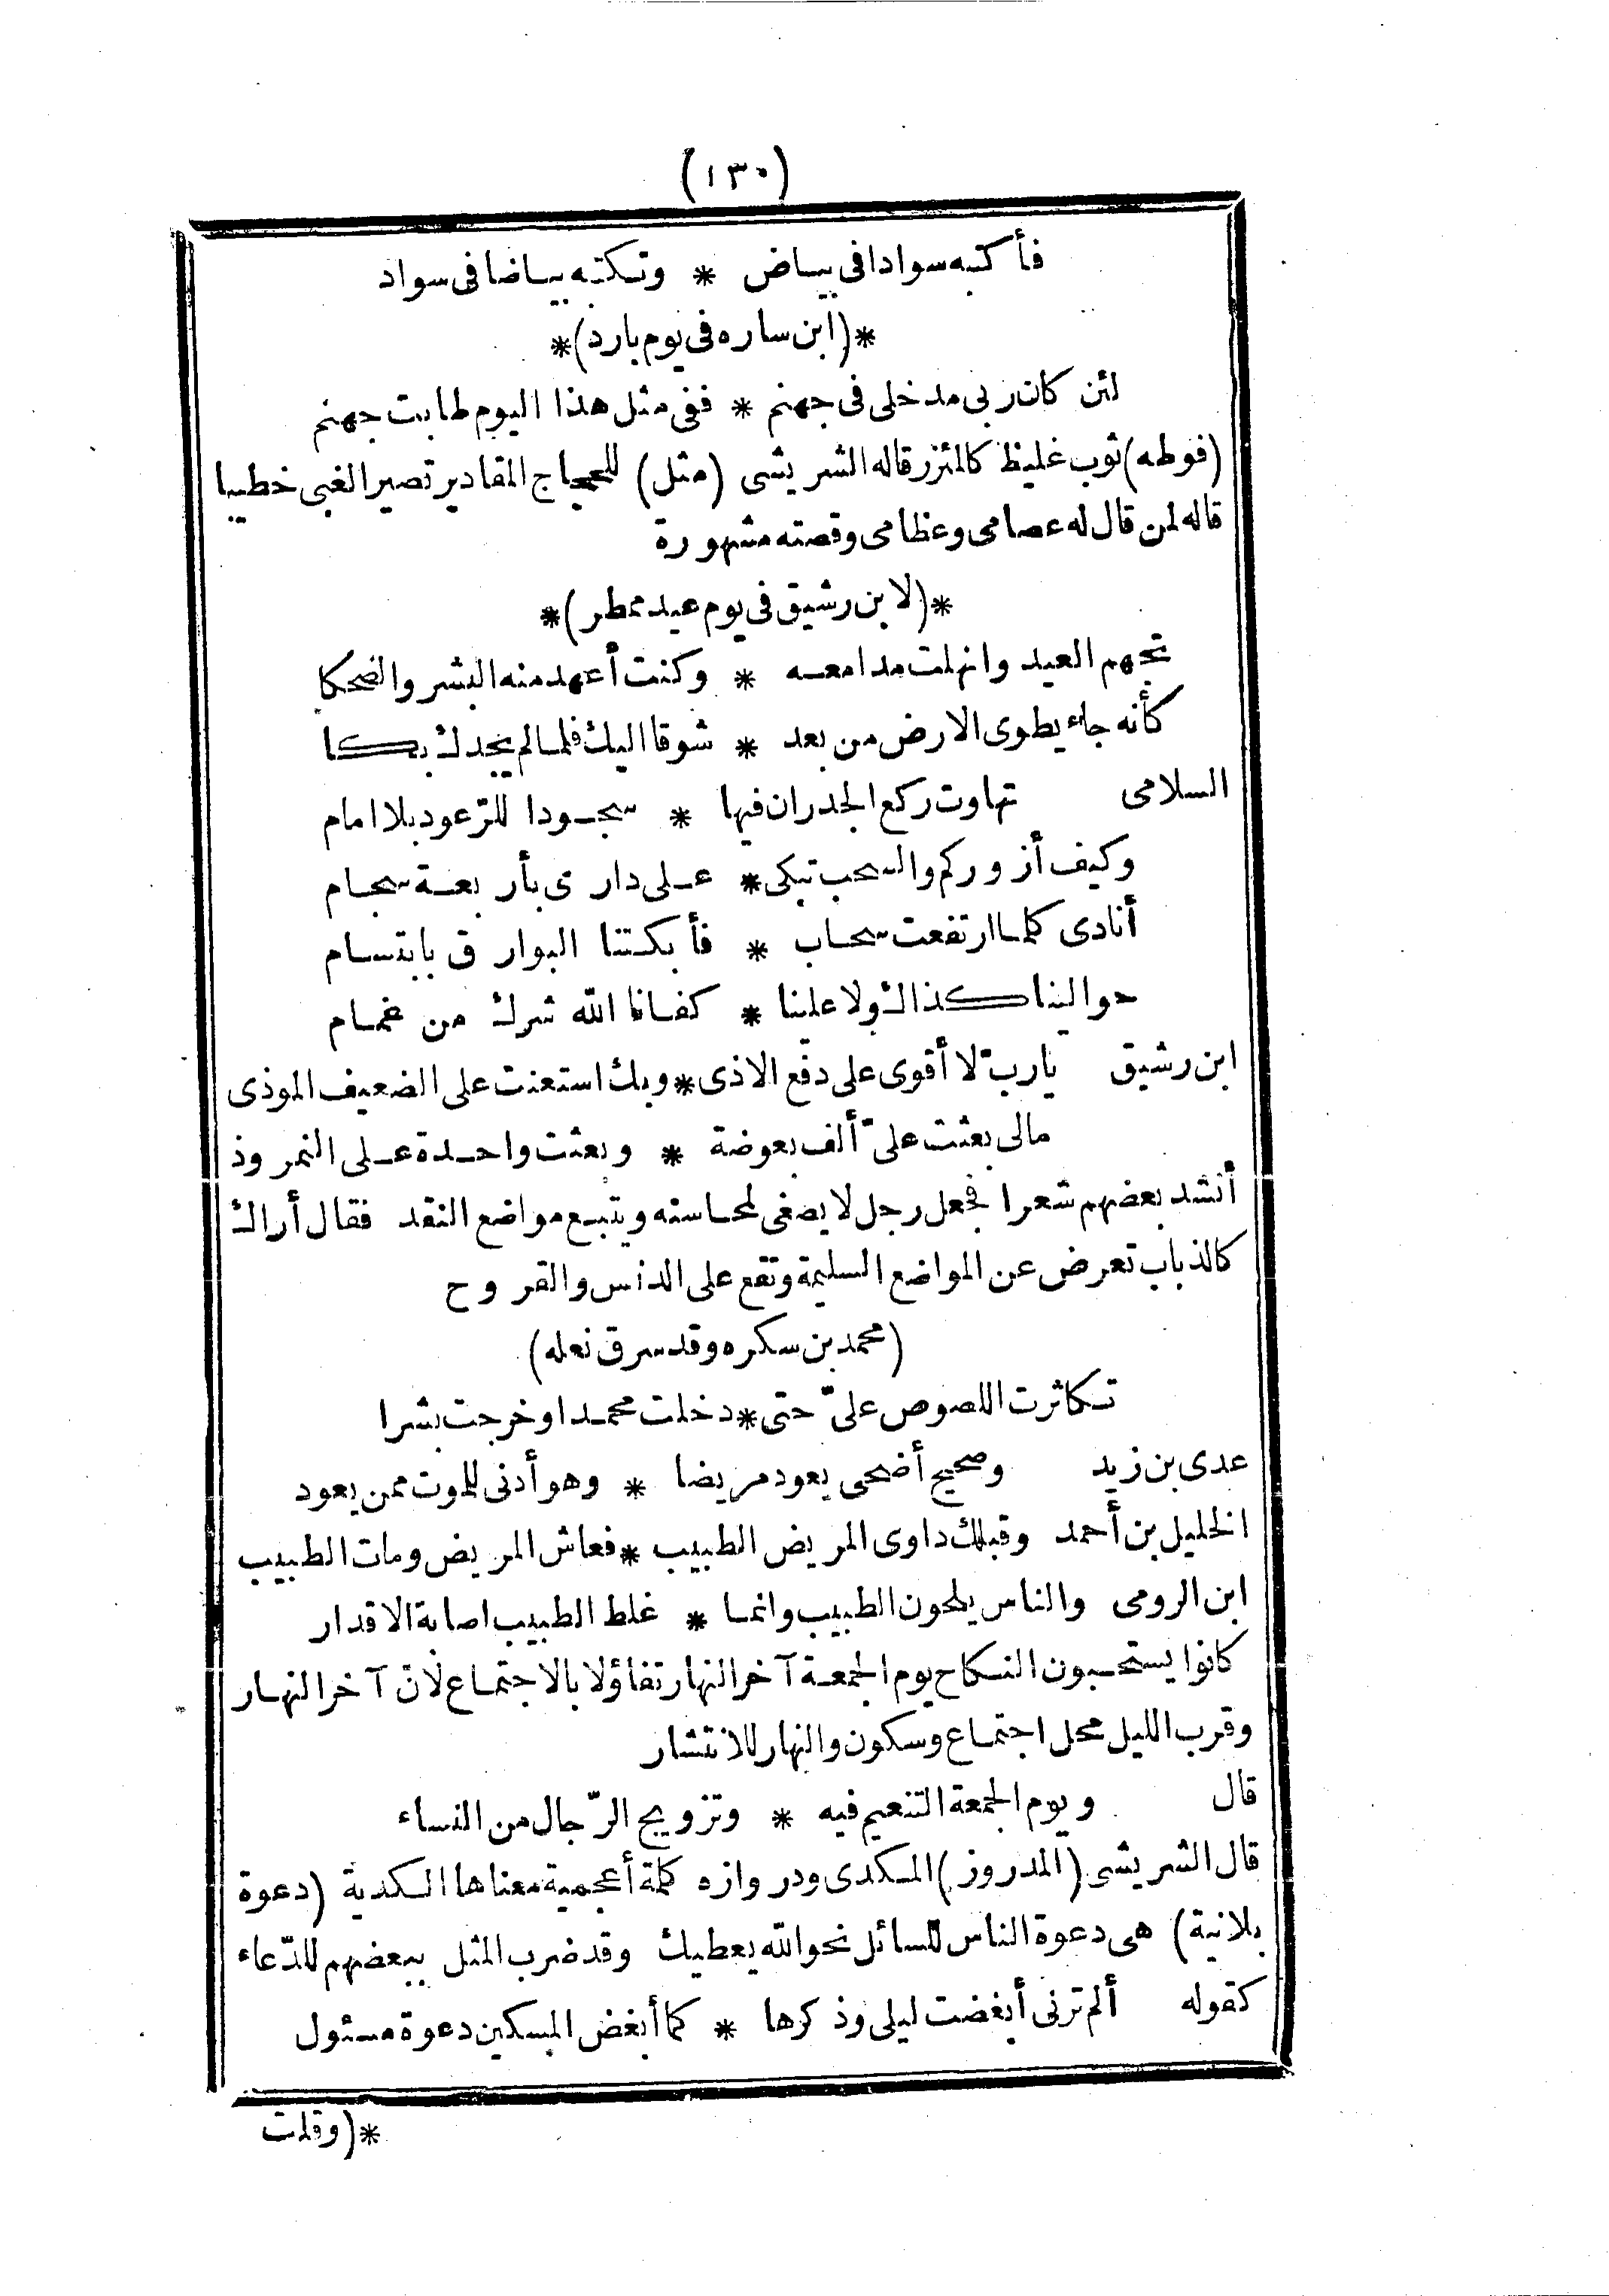 (١٣٠)
فأكتبه سوادا فى بياض * وتكتبه بياضا فى سواد
*(ابن ساره فى يوم بارد)*
لئن كان ربى مدخلى فى جهنم * ففى مثل هذا اليوم طابت جهنم
(فوطه) ثوب غليظ كالمئزر قاله الشريشى (مثل) للحجاج المقادير تصير الغبى خطيبا
قاله لمن قال له عصامى وعظامى وقصته مشهورة
*(لابن رشيق فى يوم عيد ممطر)*
تجهم العيد وانهلت مدامعه * وكنت أعهد منه البشر والضحكا
كأنه جاء يطوى الارض من بعد * شوقا اليك فلما لم يجدك بكا
السلامى تهاوت ركع الجدران فيها * سجودا للرّعود بلا امام
وكيف أزوركم والسحب تبكى * على دارى بأربعة سجام
أنادى كلما ارتفعت سحاب * فأبكتنا البوارق بابتسام
حوالينا كذاك ولا علينا * كفانا الله شرك من غمام
ابن رشيق ياربّ لا أقوى على دفع الاذى * وبك استعنت على الضعيف الموذى
مالى بعثت علىّ ألف بعوضة * وبعثت واحدة على النمروذ
أنشد بعضهم شعرا فجعل رجل لا يصغى لمحاسنه ويتبع مواضع النقد فقال أراك
كالذباب تعرض عن المواضع السليمة وتقع على الدنس والقروح
(محمد بن سكره وقد سرق نعله)
تكاثرت اللصوص علىّ حتى * دخلت محمدا وخرجت بشرا
عدى بن زيد وصحيح أضحى يعود مريضا * وهو أدنى للموت ممن يعود
الخليل بن أحمد وقبلك داوى المريض الطبيب * فعاش المريض ومات الطبيب
ابن الرومى والناس يلحون الطبيب وانما * غلط الطبيب اصابة الاقدار
كانوا يستحبون النكاح يوم الجمعة آخر النهار تفاؤلا بالاجتماع لانّ آخر النهار
وقرب الليل محل اجتماع وسكون والنهار للانتشار
قال ويوم الجمعة التنعيم فيه * وتزويج الرّجال من النساء
قال الشريشى (المدروز) المكدى ودروازه كلمة أعجمية معناها الكدية (دعوة
بلانية) هى دعوة الناس للسائل نحو الله يعطيك وقد ضرب المثل ببعضهم للدّعاء
كقوله ألم ترنى أبغضت ليلى وذكرها * كما أبغض المسكين دعوة مسئول
*(وقلت